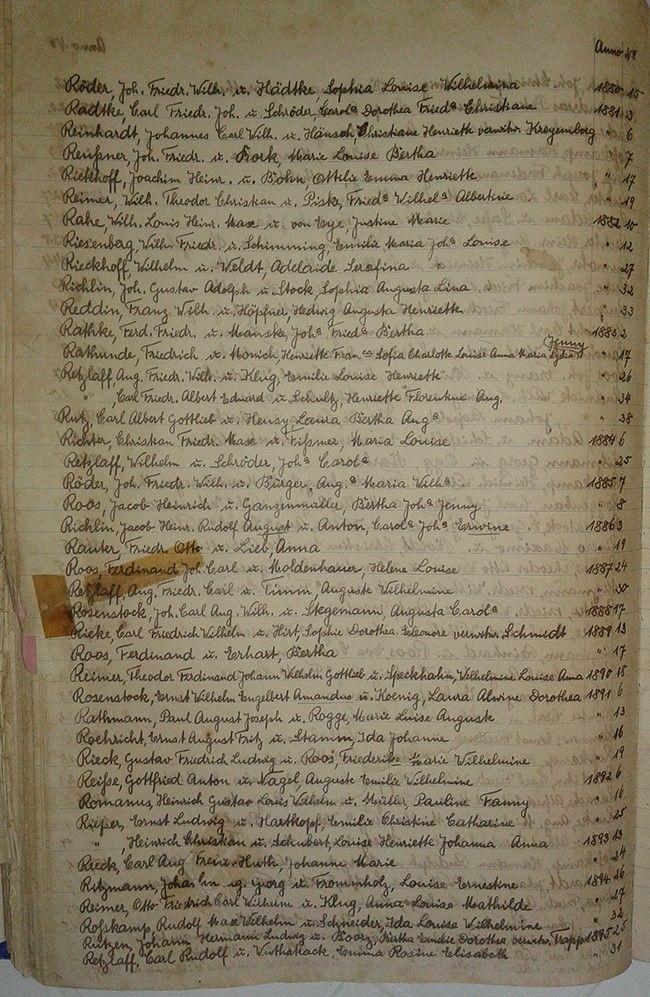 Anno No
Röder, Joh. Friedr. Wilh. u. Hädtke, Sophia Louise Wilhelmina 1880 15
Radtke, Carl Friedr. Joh. u. Schröder, Carola Dorothea Frieda Christiane 1881 3
Reinhardt, Johannes Carl Wilh. u. Hänsch, Christiane Henriette verwitw. Kreyemborg " 6
Reußner, Joh. Friedr. u. Bork, Marie Louise Bertha " 7
Riekhoff, Joachim Heinr. u. Böhn, Ottilie Emma Henriette " 17
Reimer, Wilh. Theodor Christian u. Piske, Frieda Wilhela Albertine " 19
Rahe, Wilh. Louis Heinr. Max u. von Eye, Justine Marie 1882 10
Riesenberg, Wilh. Friedr. u. Schimming, Emilie Maria Joha Louise " 12
Rieckhoff, Wilhelm u. Weldt, Adelaide Serafina " 27
Richlin, Joh. Gustav Adolph u. Stock, Sophia Augusta Lina " 32
Reddin, Franz Wilh. u. Höpfner, Hedwig Augusta Henriette " 33
Rathke, Ferd. Friedr. u. Manske, Joha Frieda Bertha 1883 2
Rathunde, Friedrich u. Monich, Henriette Franca Sofia Charlotte Louise Anna Maria Lydia Jenny " 17
Retzlaff Aug. Friedr. Wilh. u. Klug, Emilie Louise Henriette " 26
" Carl Friedr. Albert Eduard u. Schultz, Henriette Florentine Aug. " 34
Rutz, Carl Albert Gottlieb u. Hensy Laura Bertha Auga " 38
Richter, Christian Friedr. Max u. Fißmer, Maria Louise 1884 6
Retzlaff, Wilhelm u. Schröder, Joha Carola " 25
Röder, Joh. Friedr. Wilh. u. Bürger, Aug.a Maria Wilha 1885 7
Roos, Jacob Heinrich u. Ganzenmüller, Bertha Joha Jenny " 8
Richlin Jacob Heinr. Rudolf August u. Anton, Carola Joha Erwine 1886 3
Rauter, Friedr. Otto u. Lieb, Anna " 19
Roos, Ferdinand Joh. Carl u. Moldenhauer, Helene Louise 1887 24
Retzlaff, Aug. Friedr. Carl u. Timm, Auguste Wilhelmine " 30
Rosenstock, Joh. Carl Aug. Wilh. u. Stegemann, Augusta Carola 1888 17
Rieke, Carl Friedrich Wilhelm u. Hirt, Sophie Dorothea Eleonore verwitw. Schmedt 1889 13
Roos, Ferdinand u. Erhart, Bertha " 17
Reimer, Theodor Ferdinand Johann Wilhelm Gottlieb u. Speckhahn, Wilhelmine Louise Anna 1890 18
Rosenstock, Ernst Wilhelm Engelbert Amandus u. Koenig, Laura Alwine Dorothea 1891 6
Rathmann, Paul August Joseph u. Rogge, Marie Luise Auguste " 13
Roehricht, Ernst August Fritz u. Stamm, Ida Johanne " 16
Rieck, Gustav Friedrich Ludwig u. Roos, Friederike Marie Wilhelmine " 19
Reiße, Gottfried Anton u. Nagel, Auguste Emilie Wilhelmine 1892 6
Romanus, Heinrich Gustav Louis Wilhelm u. Müller, Pauline Fanny " 16
Rießer, Ernst Ludwig u. Hartkopf, Emilie Christine Catharine " 25
" , Heinrich Christian u. Schubert, Louise Henriette Johanna Anna 1893 13
Rieck, Carl Aug. Franz u. Huth, Johanne Marie " 24
Ritzmann, Georg u. Frommholz, Louise Ernestine 1894 26
Reimer, Otto Friedrich Carl Wilhelm u. Klug, Anna Louise Mathilde " 27
Roßkamp, Rudolf Max Wilhelm u. Schneider, Ida Louise Wilhelmine " 32
Rützen, Johann Hermann Ludwig u. Boorz, Bertha Emilie Dorothea verwitw. Trapp 1895 25
Retzlaff, Carl Rudolf u. Emma Rosine Elisabeth " 31